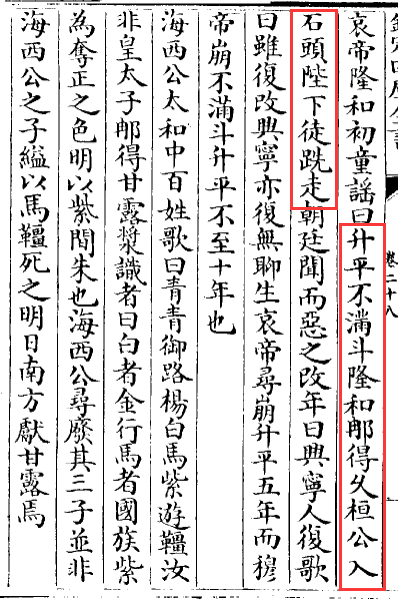 欽定四庫全書
卷二十八
哀帝隆和初童謡曰升平不滿斗隆和那得久桓公入
石頭陛下徒跣走朝廷聞而惡之改年曰興寧人復歌
曰雖復改興寧亦復無聊生哀帝尋崩升平五年而穆
帝崩不滿斗升平不至十年也
海西公太和中百姓歌曰青青御路楊白馬紫遊韁汝
非皇太子那得甘露漿識者曰白者金行馬者國族紫
為奪正之色明以紫間朱也海西公尋廢其三子並非
海西公之子縊以馬韁死之明日南方獻甘露馬